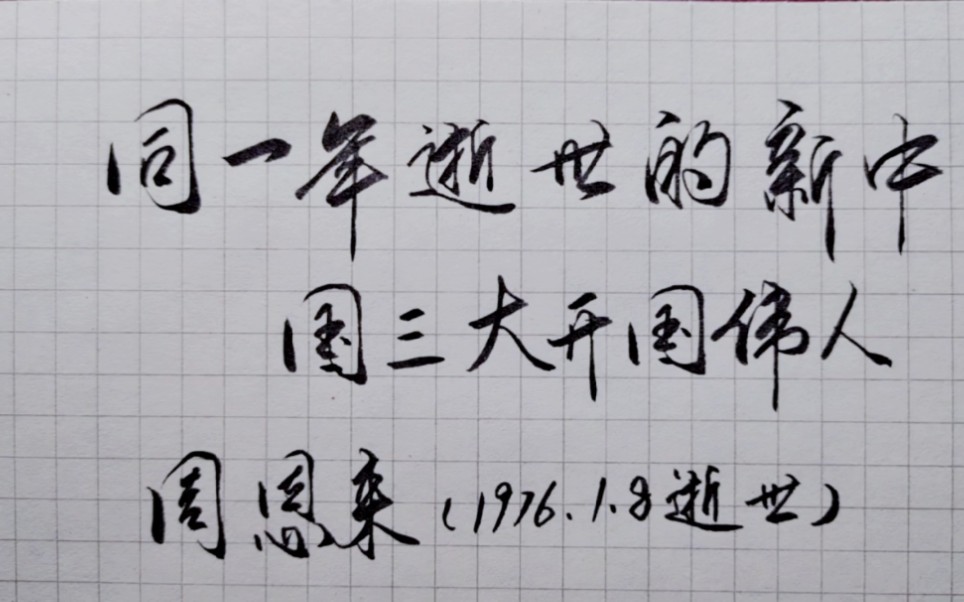 同一年逝世的新中
国三大开国伟人
周恩来(1976.1.8逝世)